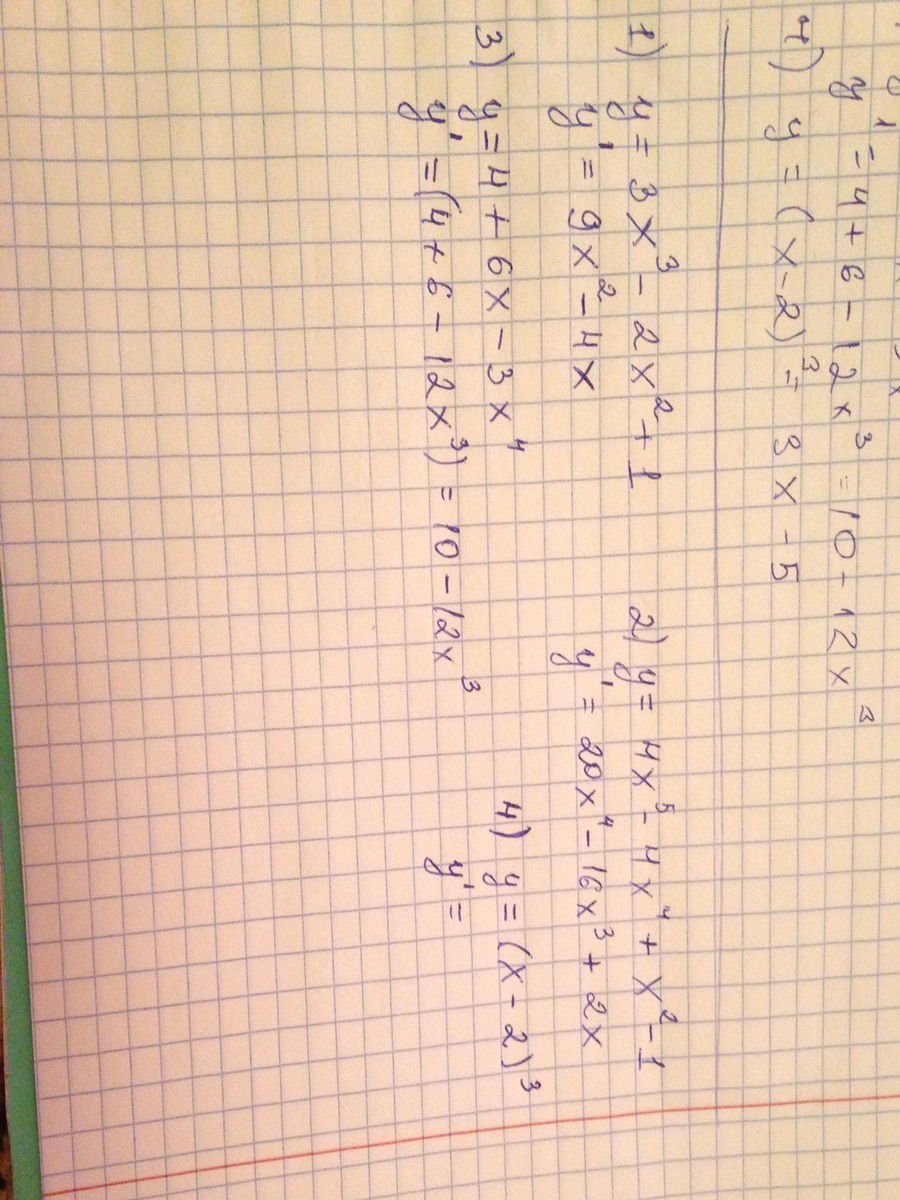 y' = 4 + 6 - 12x³ = 10 - 12x³
4) y = (x-2)³ = 3x - 5
1) y = 3x³ - 2x² + 1
y' = 9x² - 4x
2) y = 4x⁵ - 4x⁴ + x² - 1
y' = 20x⁴ - 16x³ + 2x
3) y = 4 + 6x - 3x⁴
y' = (4 + 6 - 12x³) = 10 - 12x³
4) y = (x - 2)³
y' =